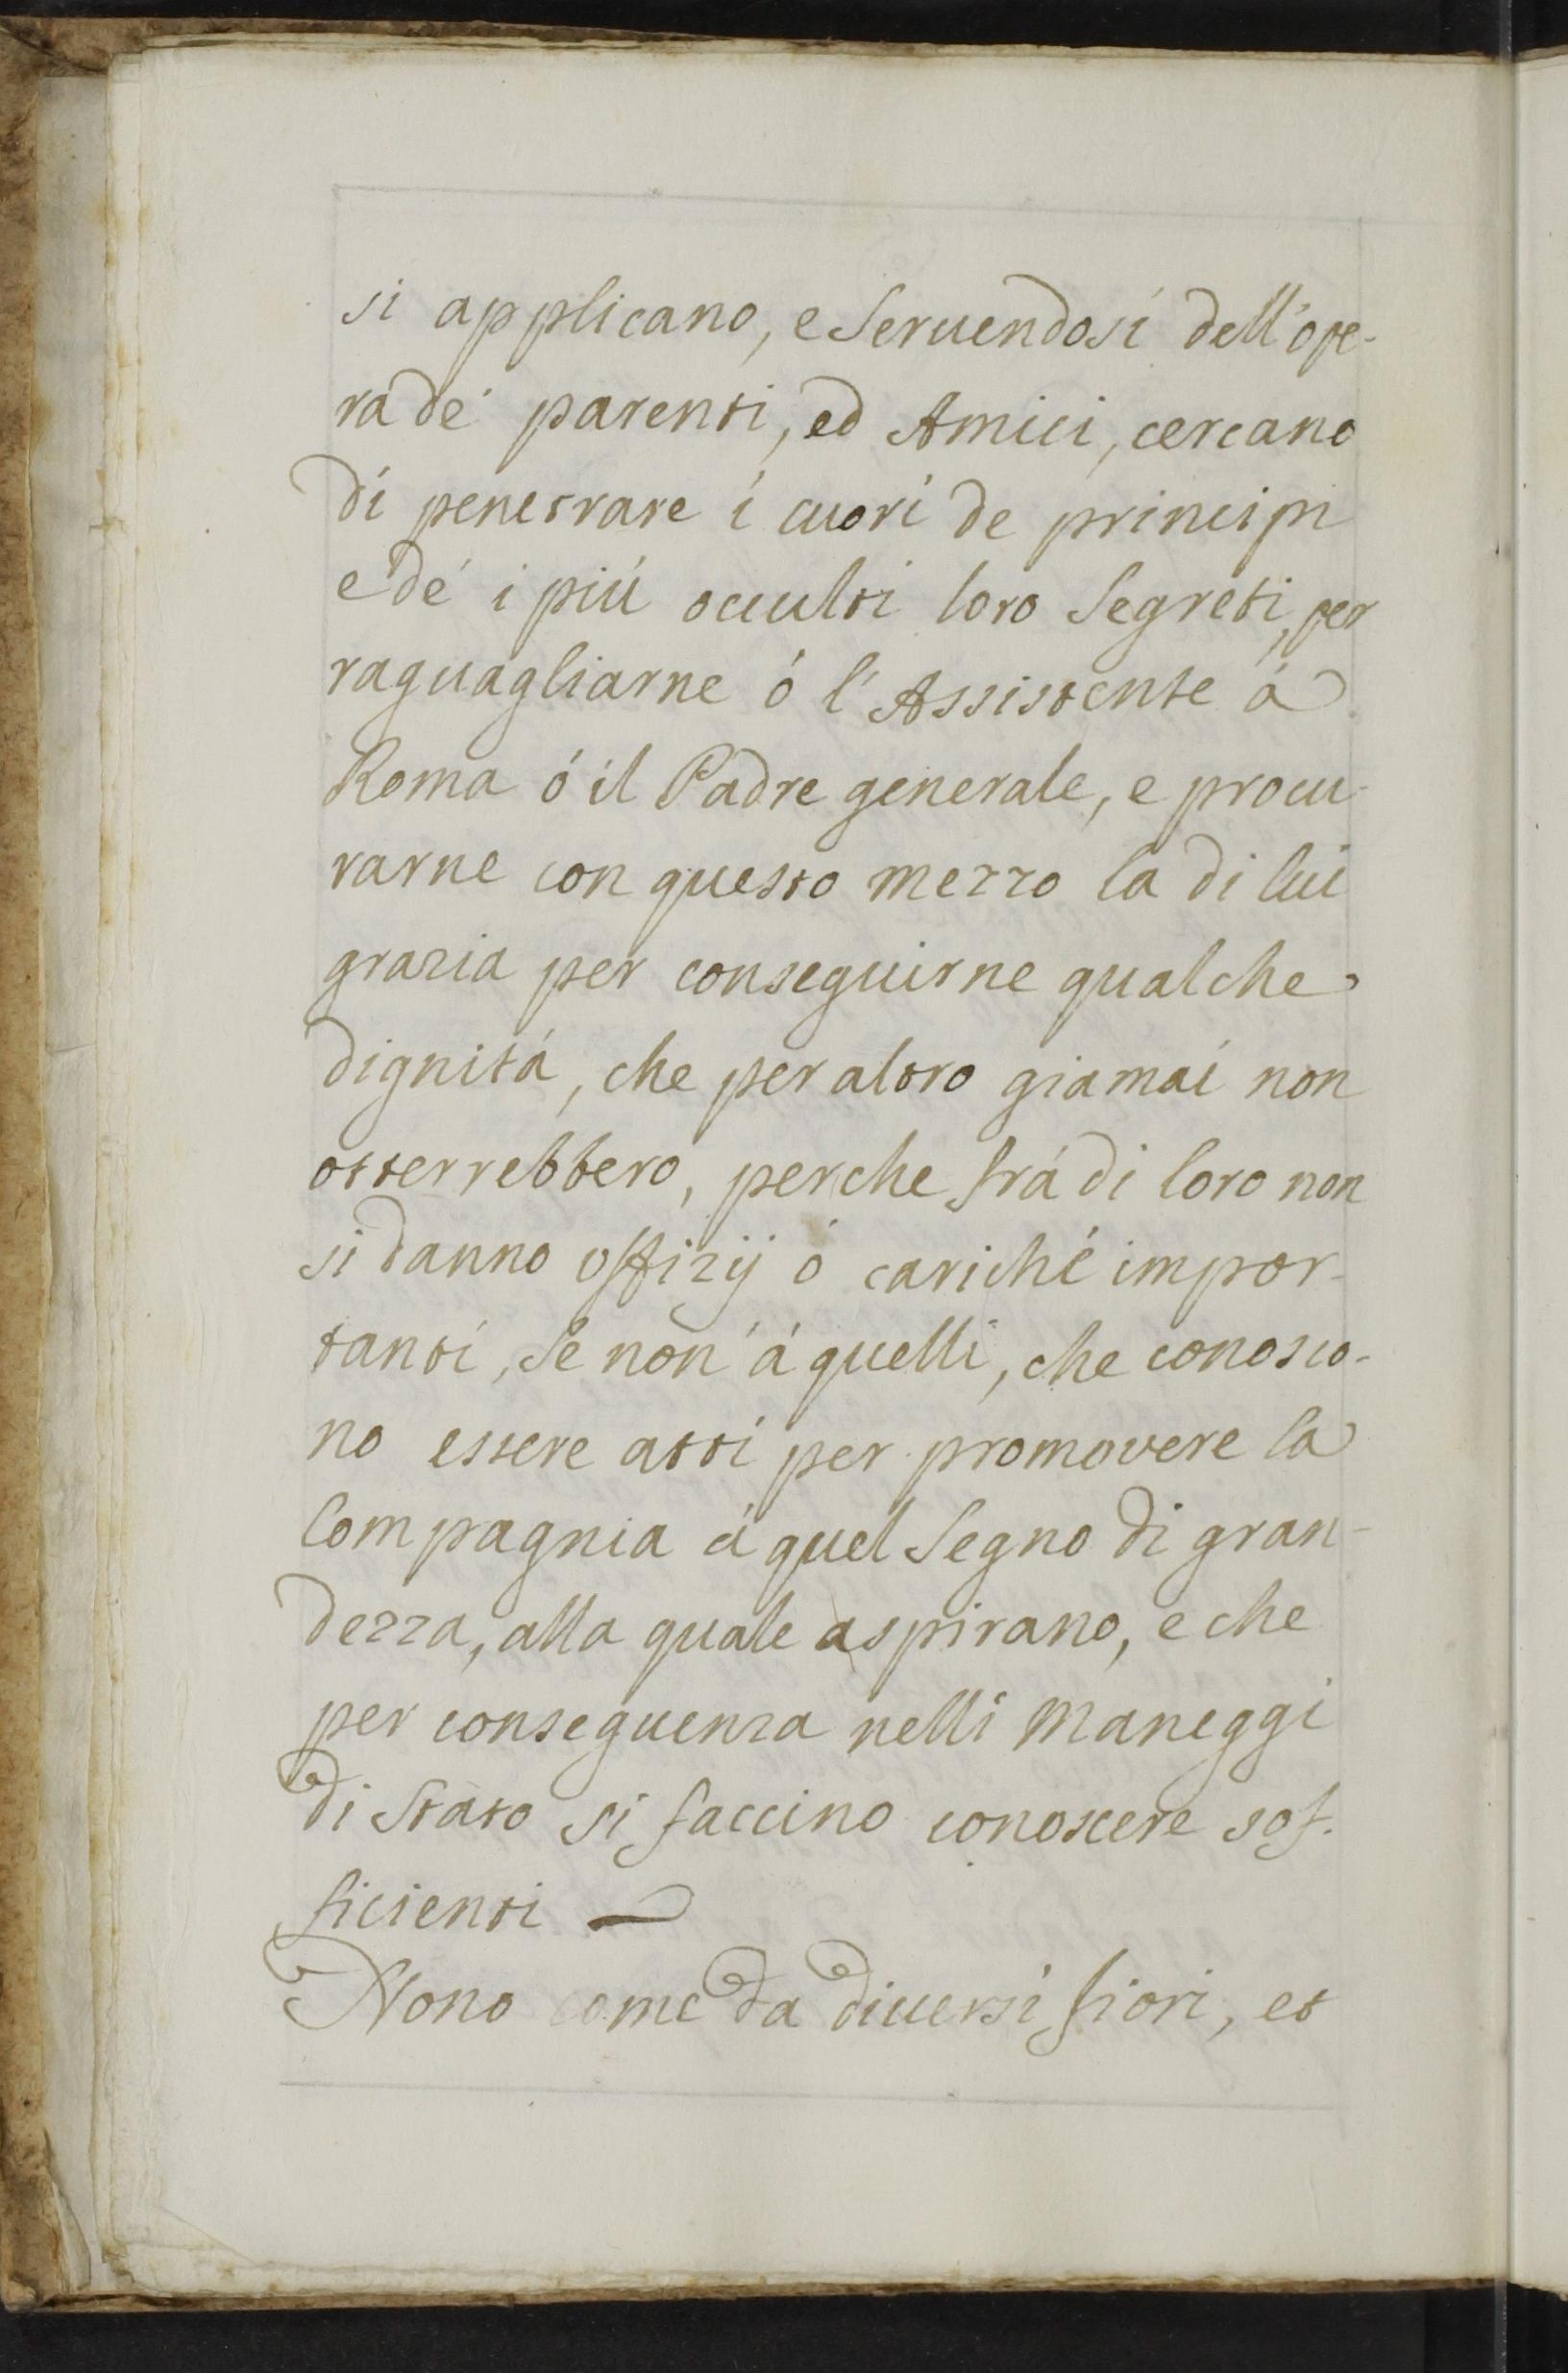 si applicano, e Seruendosi dell'ope-
ra dé parenti, ed Amici, cercano
di penetrare i cuori de principi
e dé i più occulti loro Segreti, per
raguagliarne ó l'Assistente á
Roma ó il Padre generale, e procu-
rarne con questo mezzo la di lui
grazia per conseguirne qualche
dignitá, che per altro giamai non
otterrebbero, perche frá di loro non
si danno offizij ó cariché impor-
tanti, Se non á quelli, che conosco-
no essere atti per promovere la
Compagnia á quel Segno di gran-
dezza, alla quale aspirano, e che
per conseguenza nelli Maneggi
di Stato si faccino conoscere sof-
ficienti
Nono come da diuersi fiori, et